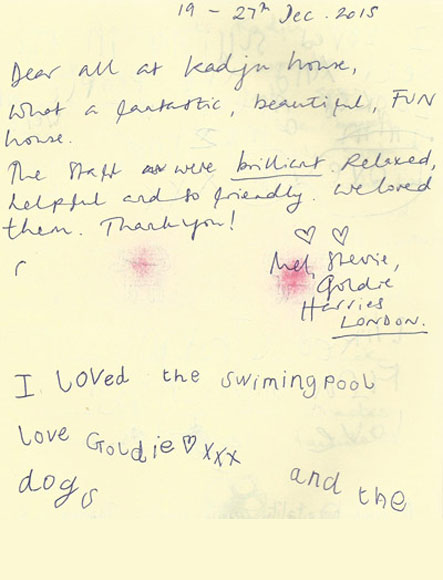 19 - 27th Dec. 2015
Dear all at Kadju house,
What a fantastic, beautiful, FUN
house.
The staff were brilliant. Relaxed,
helpful and so friendly. We loved
them. Thank you!
♡ ♡
Mel, Stevie,
Goldie
Harries
LONDON.
I LOVED the swimingpool
love Goldie♡xxx
and the
dogs